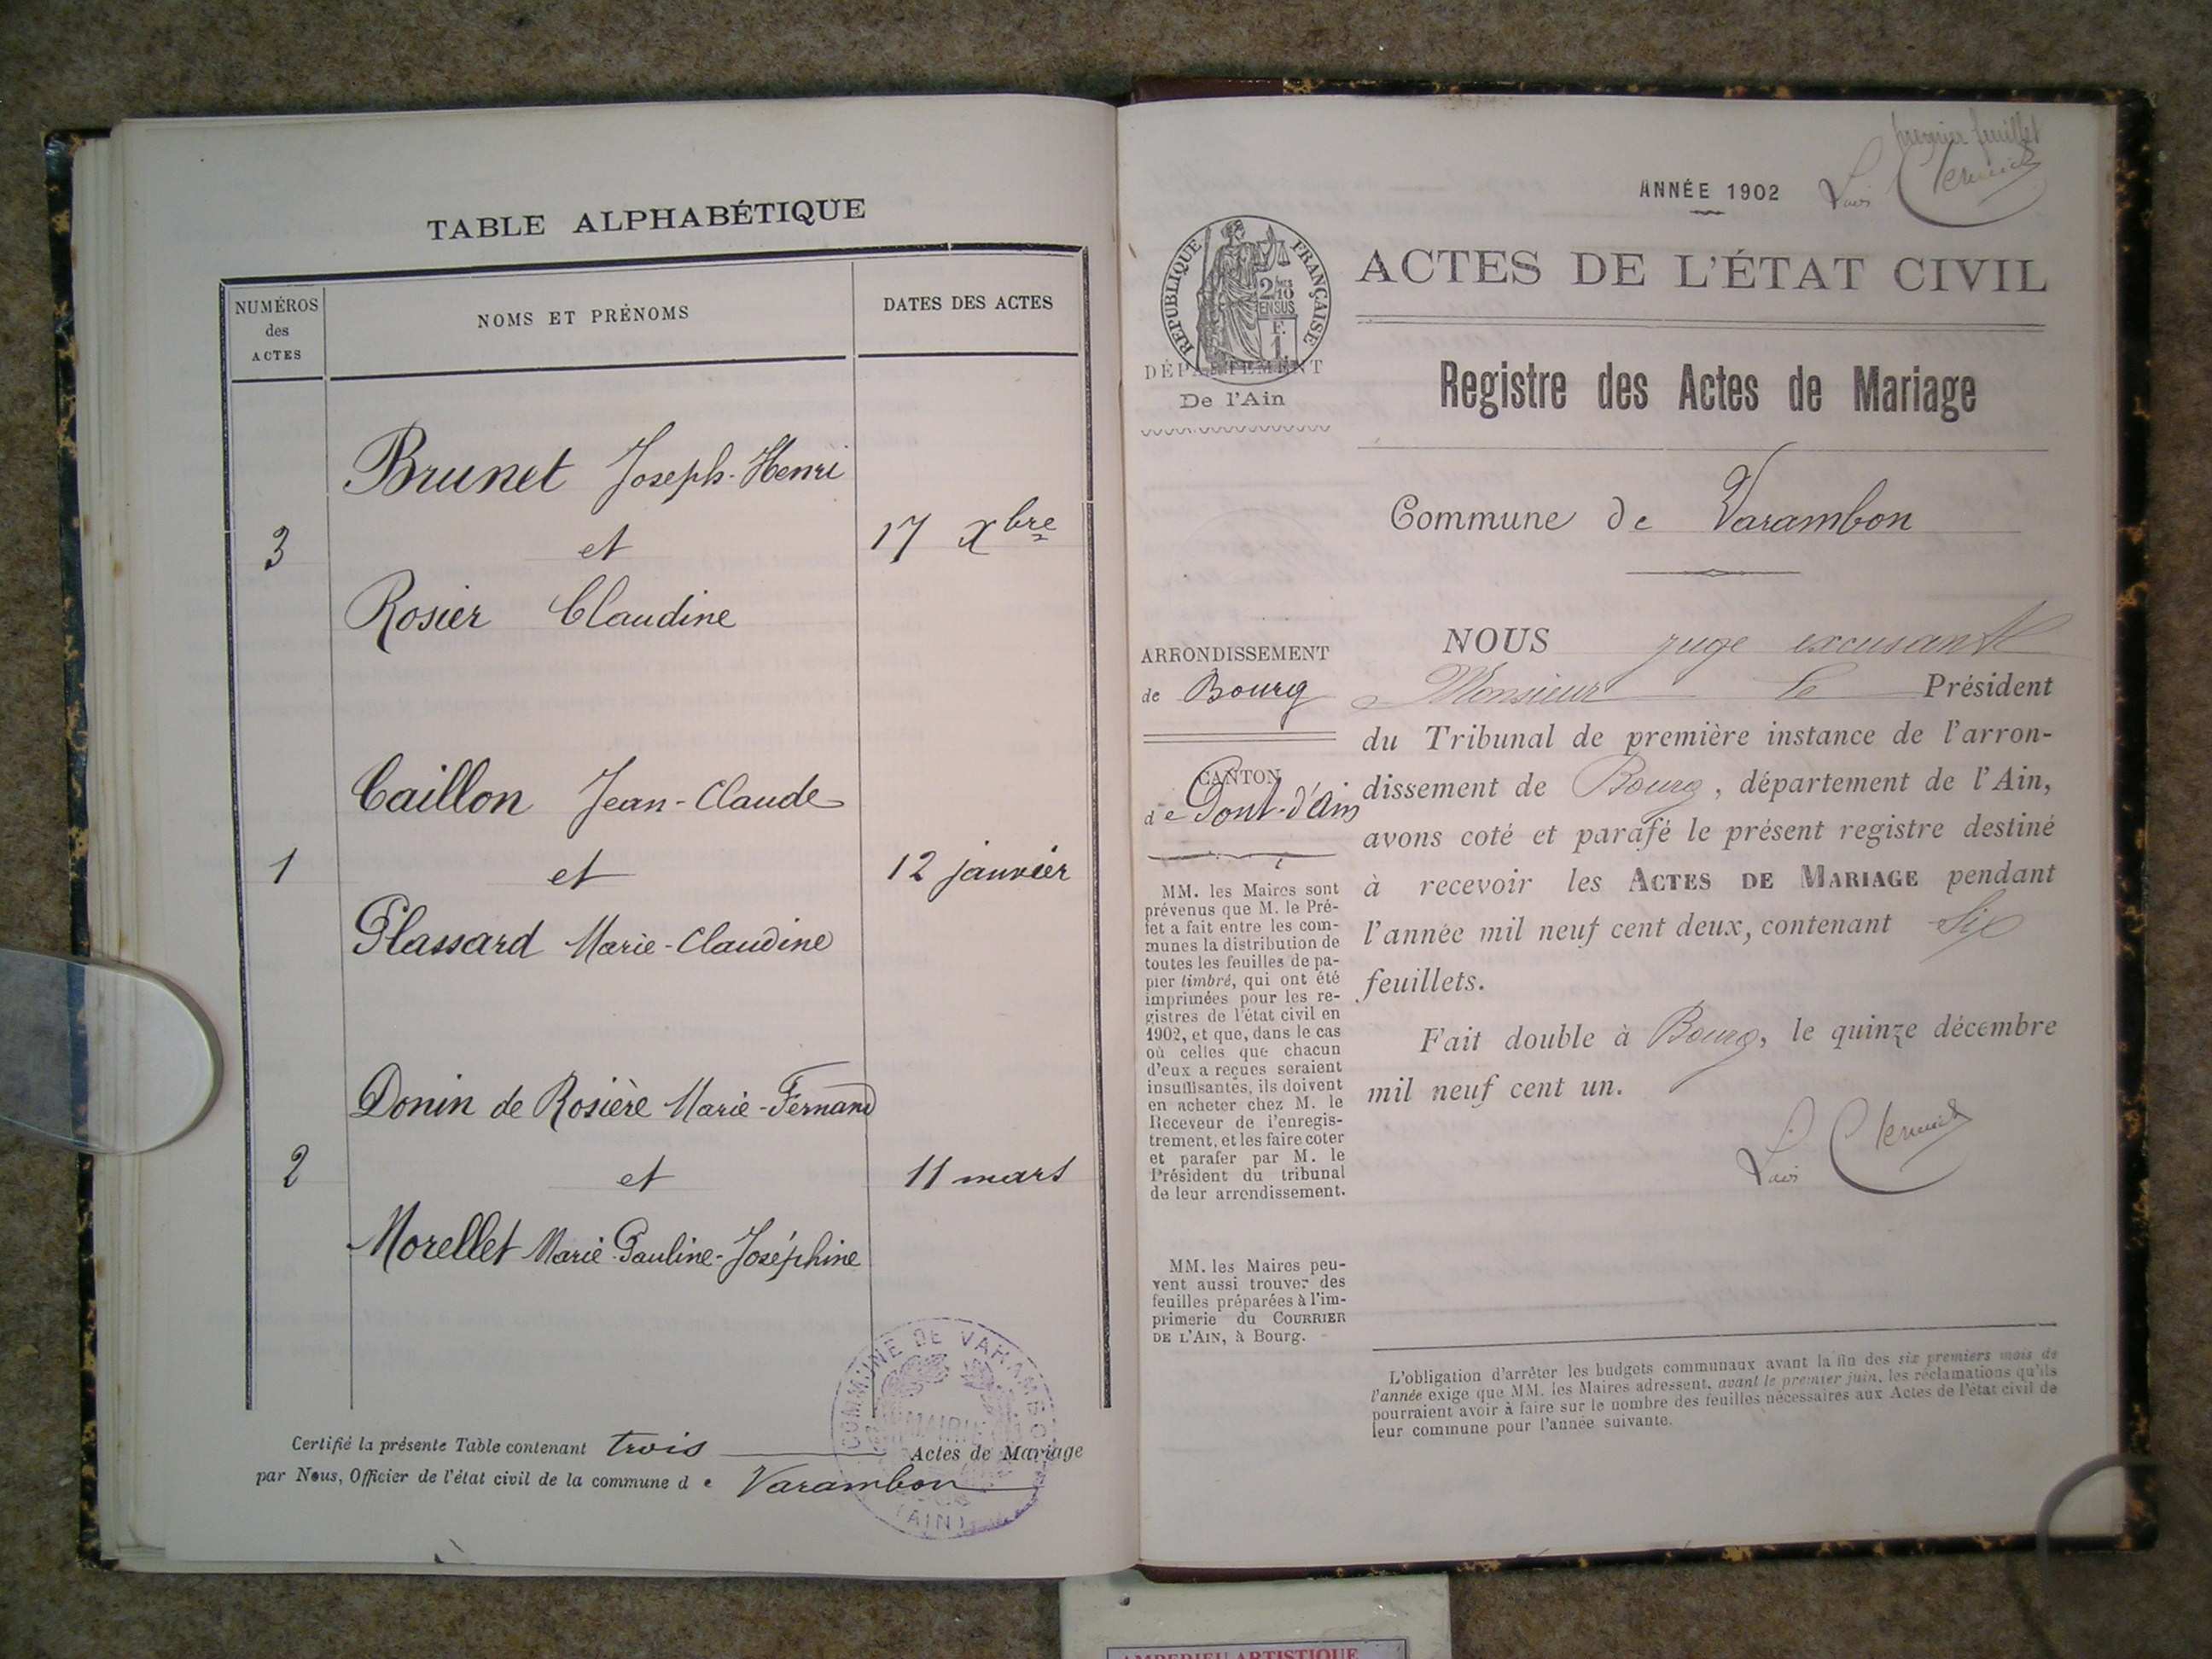 TABLE ALPHABÉTIQUE
NUMÉROS
des
ACTES
NOMS ET PRÉNOMS
DATES DES ACTES
Brunet Joseph-Henri
3 et 17 Xbre
Rosier Claudine
Caillon Jean-Claude
1 et 12 janvier
Plassard Marie-Claudine
Donin de Rosière Marie-Fernand
2 et 11 mars
Morellet Marie-Pauline-Joséphine
Certifié la présente Table contenant trois Actes de Mariage
par Nous, Officier de l'état civil de la commune de Varambon
COMMUNE DE VARAMBON
MAIRIE
(AIN)
premier feuillet
ANNÉE 1902
RÉPUBLIQUE FRANÇAISE
2/10
EN SUS
F.
1
ACTES DE L'ÉTAT CIVIL
DÉPARTEMENT
De l'Ain
Registre des Actes de Mariage
Commune de Varambon
ARRONDISSEMENT
de Bourg
CANTON
de Pont-d'Ain
MM. les Maires sont
prévenus que M. le Pré-
fet a fait entre les com-
munes la distribution de
toutes les feuilles de pa-
pier timbré, qui ont été
imprimées pour les re-
gistres de l'état civil en
1902, et que, dans le cas
où celles que chacun
d'eux a reçues seraient
insuffisantes, ils doivent
en acheter chez M. le
Receveur de l'enregis-
trement, et les faire coter
et parafer par M. le
Président du tribunal
de leur arrondissement.
MM. les Maires peu-
vent aussi trouver des
feuilles préparées à l'im-
primerie du COURRIER
DE L'AIN, à Bourg.
NOUS juge excusant
Monsieur le Président
du Tribunal de première instance de l'arron-
dissement de Bourg, département de l'Ain,
avons coté et parafé le présent registre destiné
à recevoir les ACTES DE MARIAGE pendant
l'année mil neuf cent deux, contenant Six
feuillets.
Fait double à Bourg, le quinze décembre
mil neuf cent un.
L'obligation d'arrêter les budgets communaux avant la fin des six premiers mois de
l'année exige que MM. les Maires adressent, avant le premier juin, les réclamations qu'ils
pourraient avoir à faire sur le nombre des feuilles nécessaires aux Actes de l'état civil de
leur commune pour l'année suivante.
AMBERIEU ARTISTIQUE